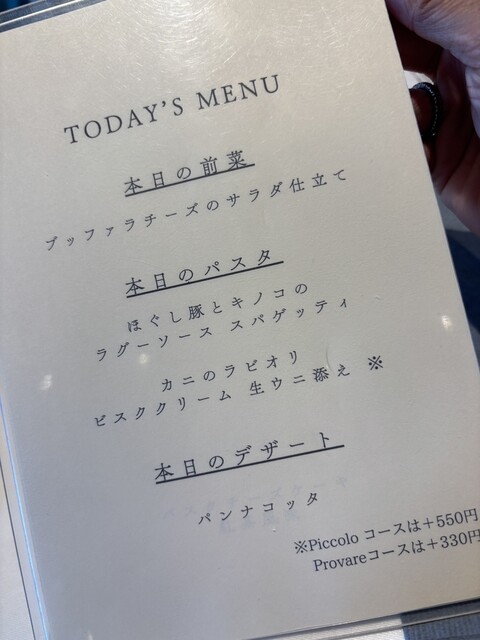 TODAY'S MENU
本日の前菜
ブッファラチーズのサラダ仕立て
本日のパスタ
ほぐし豚とキノコの
ラグーソース スパゲッティ
カニのラビオリ
ビスククリーム 生ウニ添え ※
本日のデザート
パンナコッタ
※Piccolo コースは＋550円
Provareコースは＋330円